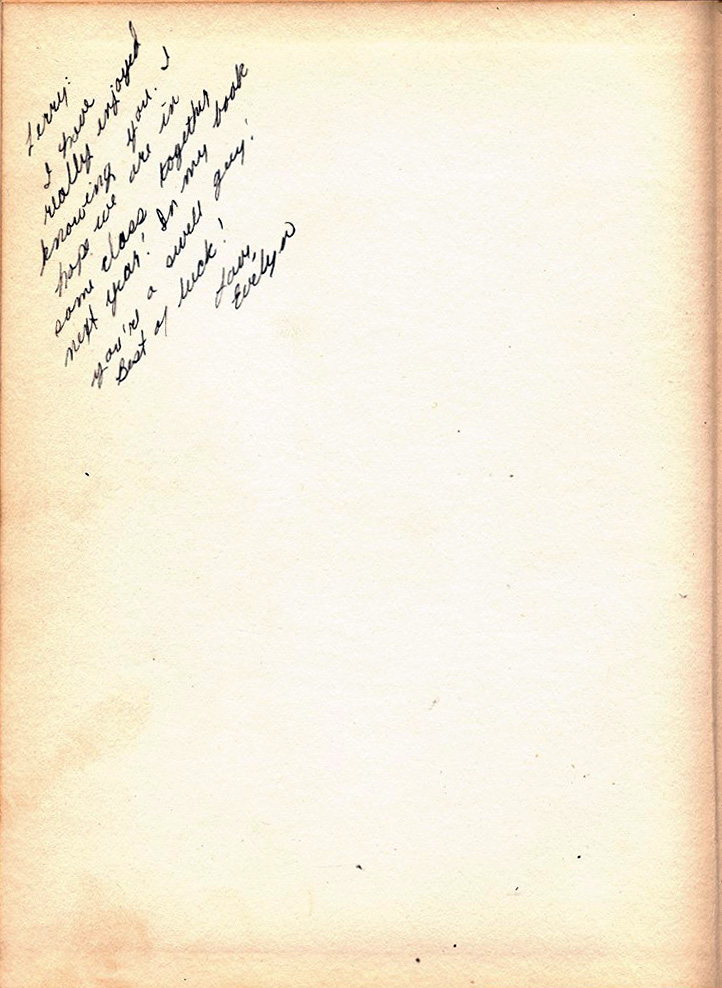 Terry:
I have
really enjoyed
knowing you. I
hope we are in
some class together
next year! In my book
you're a swell guy!
Best of luck!
Love,
Evelyn